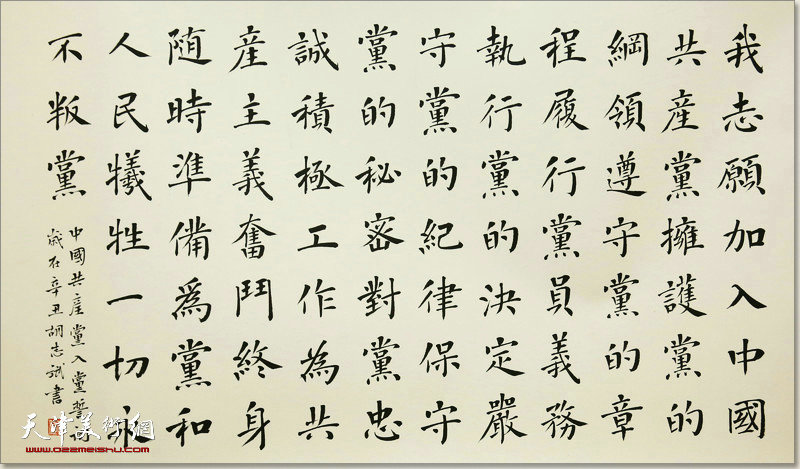 我志願加入中國
共産黨擁護黨的
綱領遵守黨的章
程履行黨員義務
執行黨的決定嚴
守黨的紀律保守
黨的秘密對黨忠
誠積極工作為共
産主義奮鬥終身
随時準備爲黨和
人民犧牲一切永
不叛黨
中國共産黨入黨誓詞
歲在辛丑胡志武書
天津美術網
www.022meishu.com